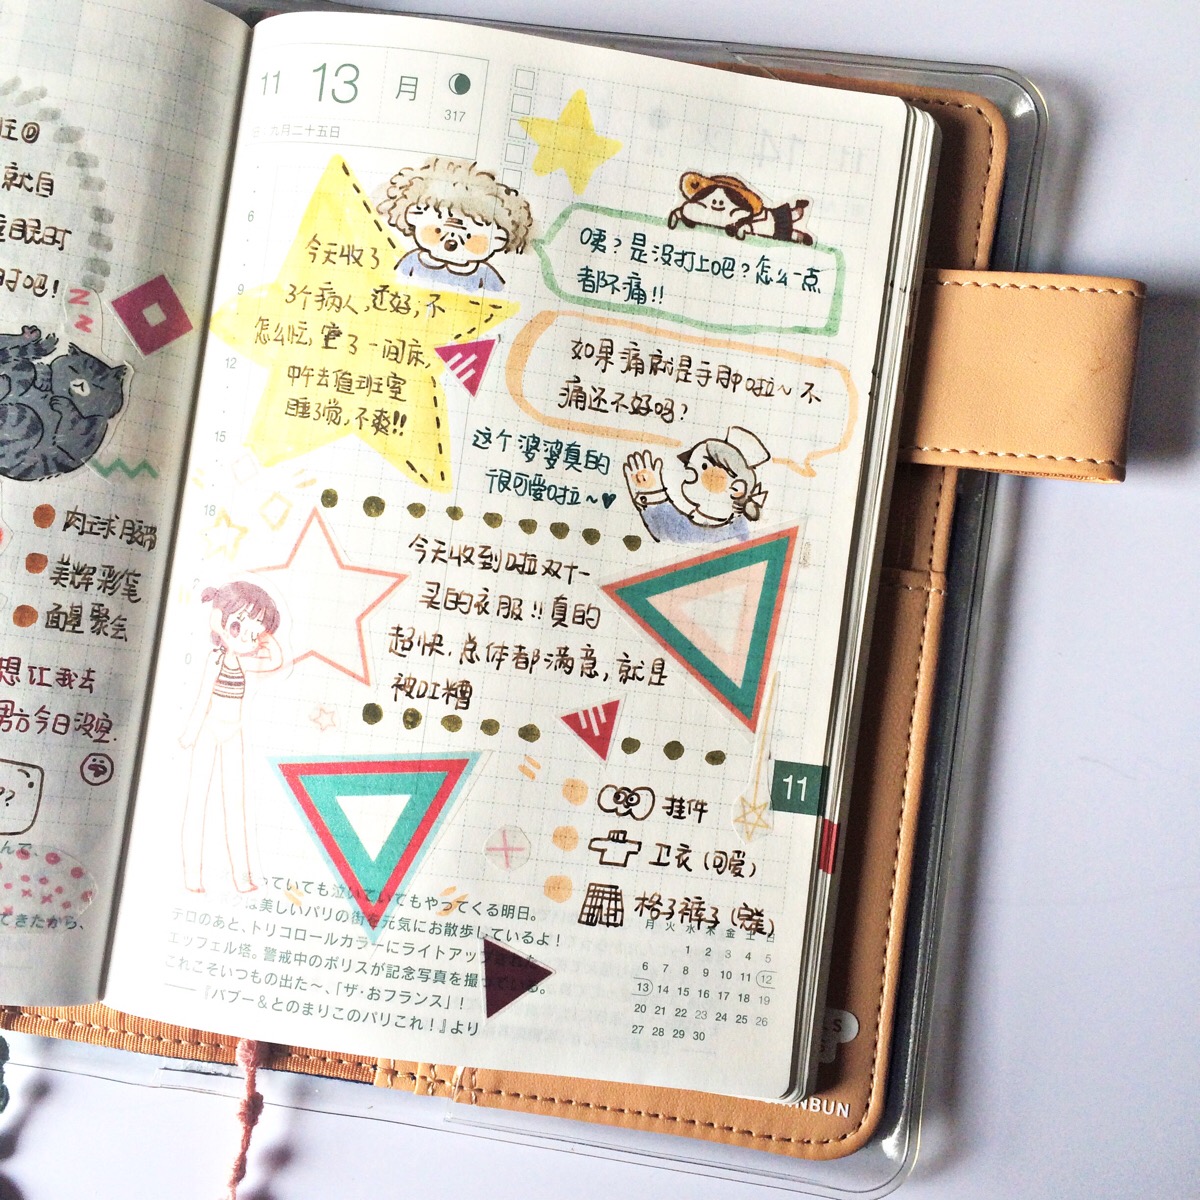 王@
就自
睡眠时
时吧!
z
z
肉球胶带
美辉彩笔
面基聚会
想让我去
男方今日没空.
??
んで、
てきたから、
11 13 月
317
九月二十五日
6
9
12
15
18
0
今天收了
3个病人,还好,不
怎么忙,空了一间床,
中午去值班室
睡了觉,不爽!!
咦?是没打上吧?怎么一点
都不痛!!
如果痛就是手肿啦~不
痛还不好吗?
这个婆婆真的
很可爱啦~♥
今天收到啦双十一
买的衣服!!真的
超快.总体都满意,就是
被吐糟
11
挂件
卫衣(可爱)
格子裤子(完美)
っていても泣いていてもやってくる明日。
は美しいパリの街を元気にお散歩しているよ!
テロのあと、トリコロールカラーにライトアップされた
エッフェル塔。警戒中のポリスが記念写真を撮っている。
これこそいつもの出た〜、「ザ・おフランス」!
——『バブー&とのまりこのパリこれ!』より
月 火 水 木 金 土 日
1 2 3 4 5
6 7 8 9 10 11 12
13 14 15 16 17 18 19
20 21 22 23 24 25 26
27 28 29 30
NBUN